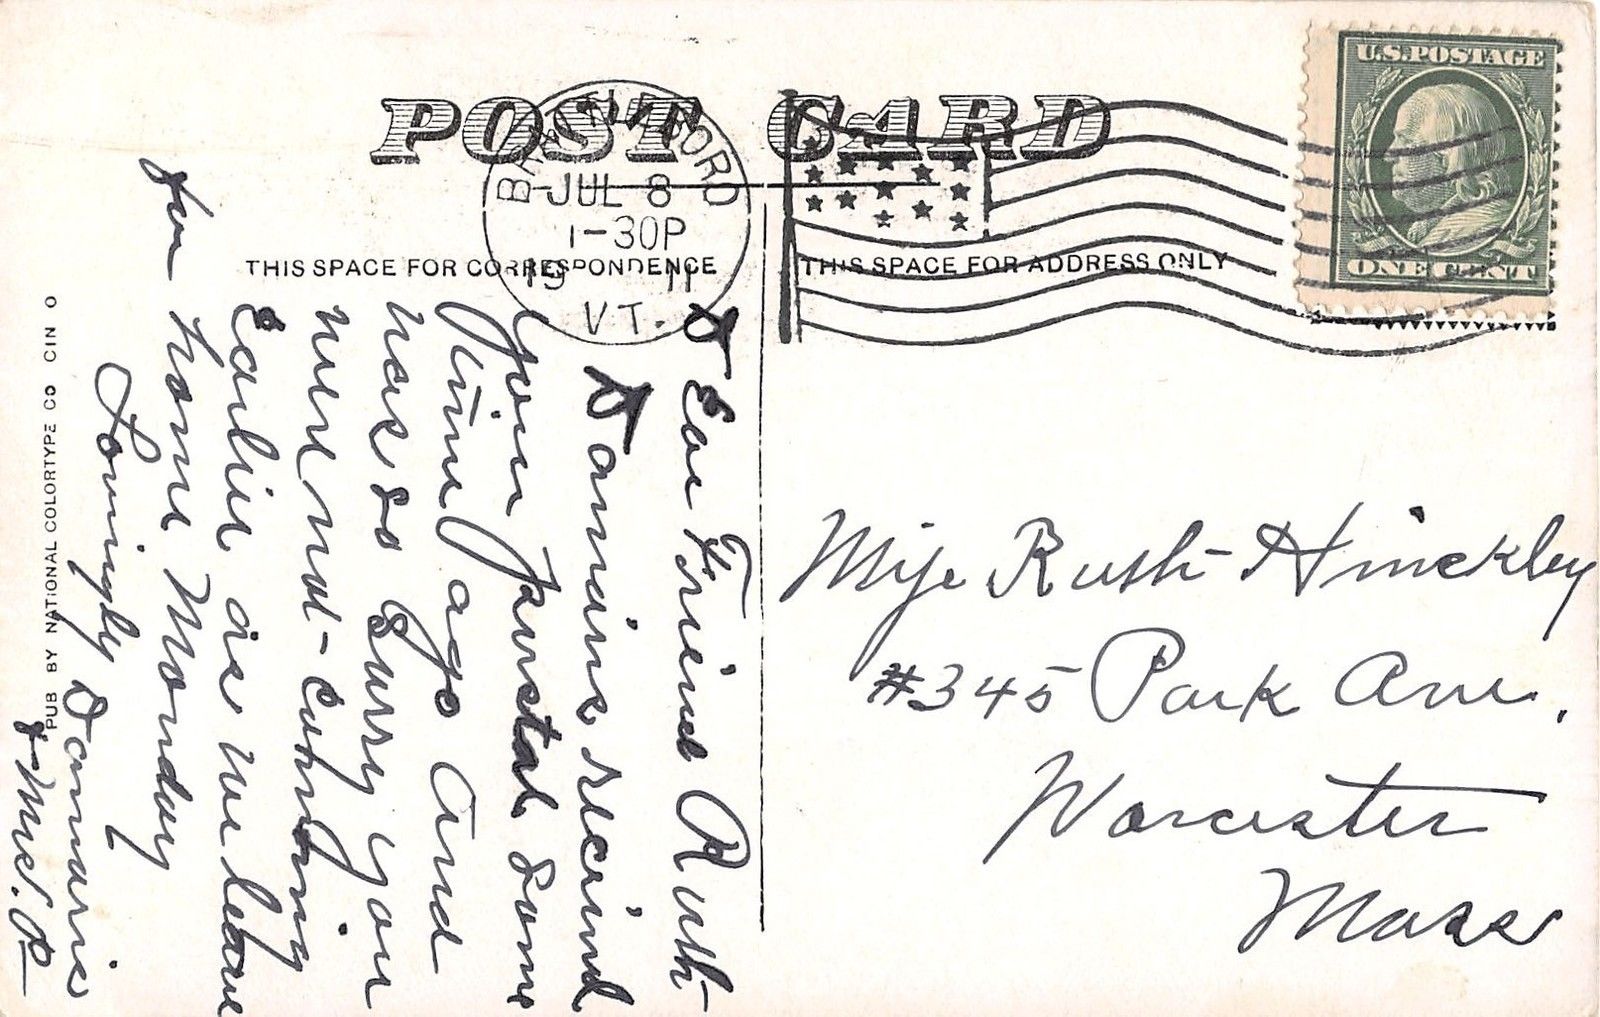 POST CARD
THIS SPACE FOR CORRESPONDENCE
THIS SPACE FOR ADDRESS ONLY
U.S. POSTAGE
ONE CENT
JUL 8
1-30P
19 11
VT.
Dear Friend Ruth
Damaris received
your postal some
time ago and
was so sorry you
were not coming
Earlier as we leave
for home Monday
Lovingly Damaris
& Mrs. P
Miss Ruth Hinckley
#345 Park Ave.
Worcester
Mass
PUB BY NATIONAL COLORTYPE CO CIN O